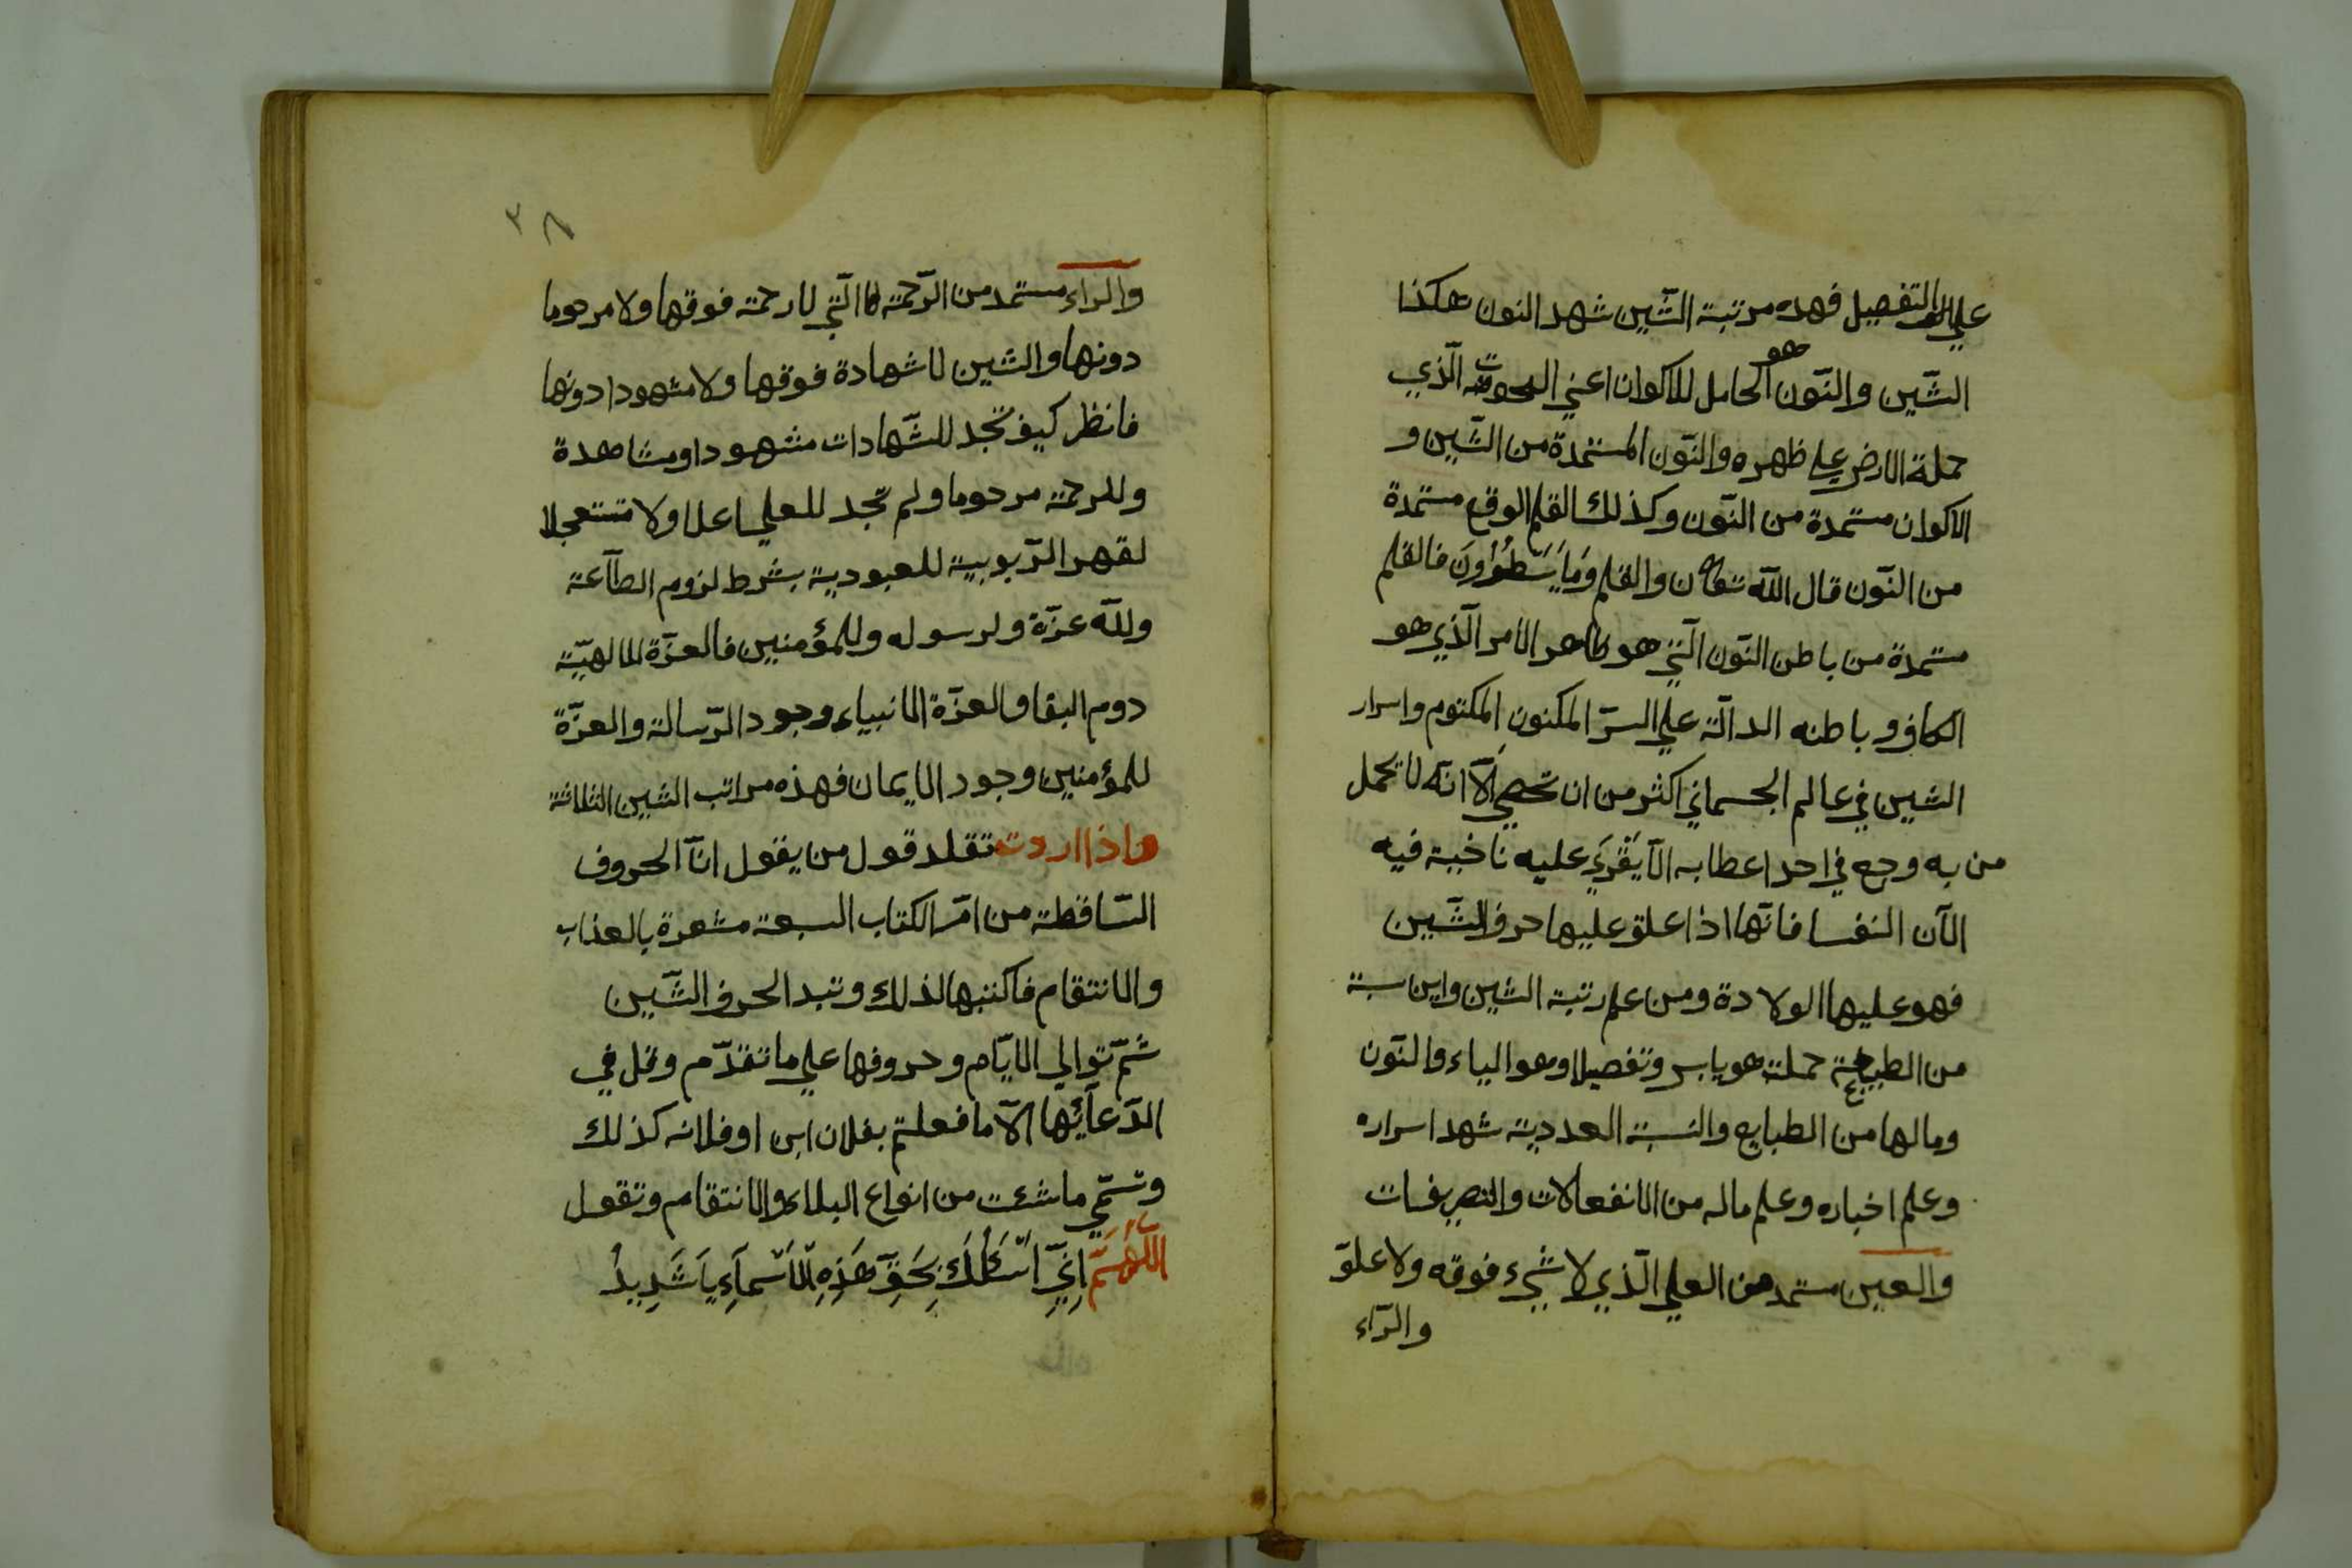 علي التفصيل فهده مرتبة الشّين شهد النون هكذا
الشّين والنّون هو الحامل للاكوان اعني الحوت الّذي
حملة الارض علي ظهره والنّون المستمدة من الشّين و
الاكوان مستمدة من النّون وكذلك القلم الوقع مستمدة
من النّون قال اللّه تعا ن والقلم وَمَا يَسْطُرُونَ فالقلم
مستمدة من باطن النّون الّتي هو ظاهر الامر الّذي هو
الكاف وباطنه الدالّة علي السرّ المكنون المكتوم واسرار
الشين في عالم الجسماني اكثر من ان تحصي الّا انّه لا يحمل
من به وجع في احد اعطابه الّا يَقْرَي عليه ناخيبة فيه
الآن النفسا فانّها اذا علق عليها حرف الشّين
فهو عليها الولادة ومن علم رتبة الشين واين سبة
من الطبيعة حملة هو يابس وتفصيلا وهو الياء والنّون
ومالها من الطبايع والنسبة العددية شهد اسراره
وعلم اخباره وعلم ماله من الانفعالات والتصريفات
والعين مستمد من العلي الّذي لا شيء فوقه ولا علوّ
والرّاء
٣٨
والراء مستمد من الرّحمة الّتي لا رحمة فوقها ولا مرحوما
دونها والشين لا شهادة فوقها ولا مشهودا دونها
فانظر كيف تجد للشّهادات مشهودا ومشاهدة
وللرحمة مرحوما ولم تجد للعلي اعلا ولا مستعجلا
لقهر الرّبوبية للعبودية بشرط لزوم الطآعة
وللّه عزّة ولرسوله وللمؤمنين فالعزّة الالهيّة
دوم البقا والعزّة الانبياء وجود الرّسالة والعزّة
للمؤمنين وجود الايمان فهذه مراتب الشين الثلاثة
واذا اردت تقلد قول من يقول انّ الحروف
السّاقطة من امّ الكتاب السبعة مشعرة بالعذاب
والانتقام فاكتبها لذلك وتبدا لحرف الشّين
ثمّ توالي الايّام وحروفها علي ما تقدّم وقل في
الدّعآئها الّا ما فعلتم بفلان ابن اوفلانه كذلك
وتسمّي ما شئت من انواع البلاء والانتقام وتقول
اللّهُمَّ اِنِّي اَسْئَلُكَ بِحَقِّ هَذِهِ الْاَسْمآءِ يا شَدِيدُ